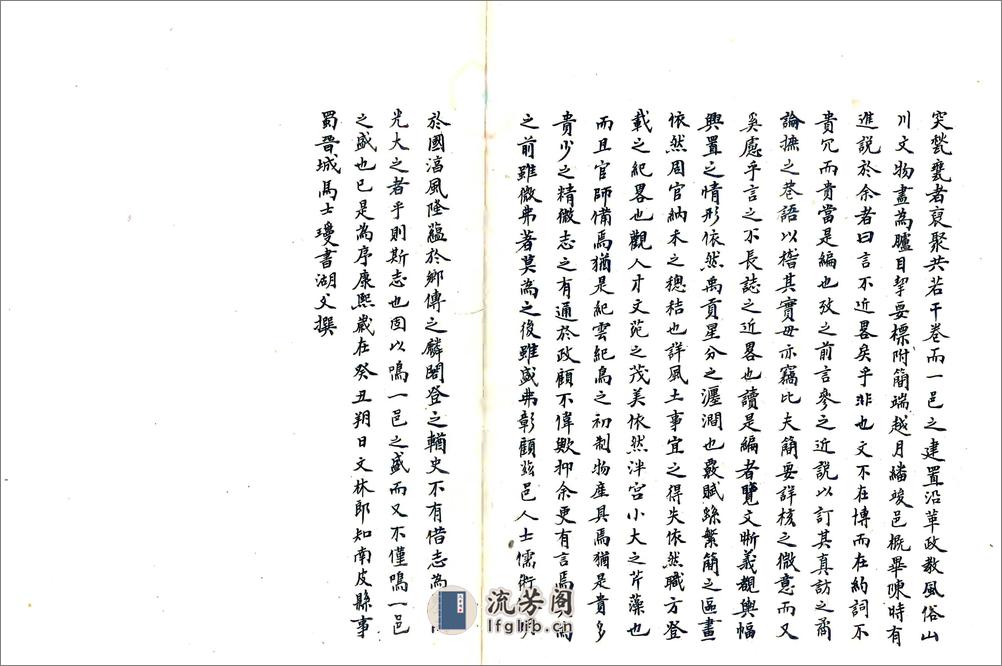 突甃甕者裒聚共若干卷而一邑之建置沿革政教風俗山
川文物盡為臚目挈要標附簡端越月繙竣邑概畢陳時有
進說於余者曰言不近畧矣乎非也文不在博而在約詞不
貴冗而貴當是編也攷之前言參之近說以訂其真訪之蕘
論摭之巷語以稽其實毋亦竊比夫簡要詳核之微意而又
奚慮乎言之不長誌之近畧也讀是編者覽文晰義觀輿幅
興置之情形依然禹貢星分之瀍澗也覈賦繇繁簡之區畫
依然周官納禾之總秸也詳風土事宜之得失依然職方登
載之紀畧也觀人才文苑之茂美依然泮宮小大之芹藻也
而且官師備焉猶是紀雲紀鳥之初制物產具焉猶是貴多
貴少之精微志之有通於政顧不偉歟抑余更有言焉為
之前雖微弗著莫為之後雖盛弗彰顧茲邑人士儒術
於國涵風隆蘊於鄉傳之麟閣登之輶史不有借志為
光大之者乎則斯志也固以鳴一邑之盛而又不僅鳴一邑
之盛也已是為序康熙歲在癸丑朔日文林郎知南皮縣事
蜀晉城馬士瓊書湖父撰
流芳阁
lfglib.cn